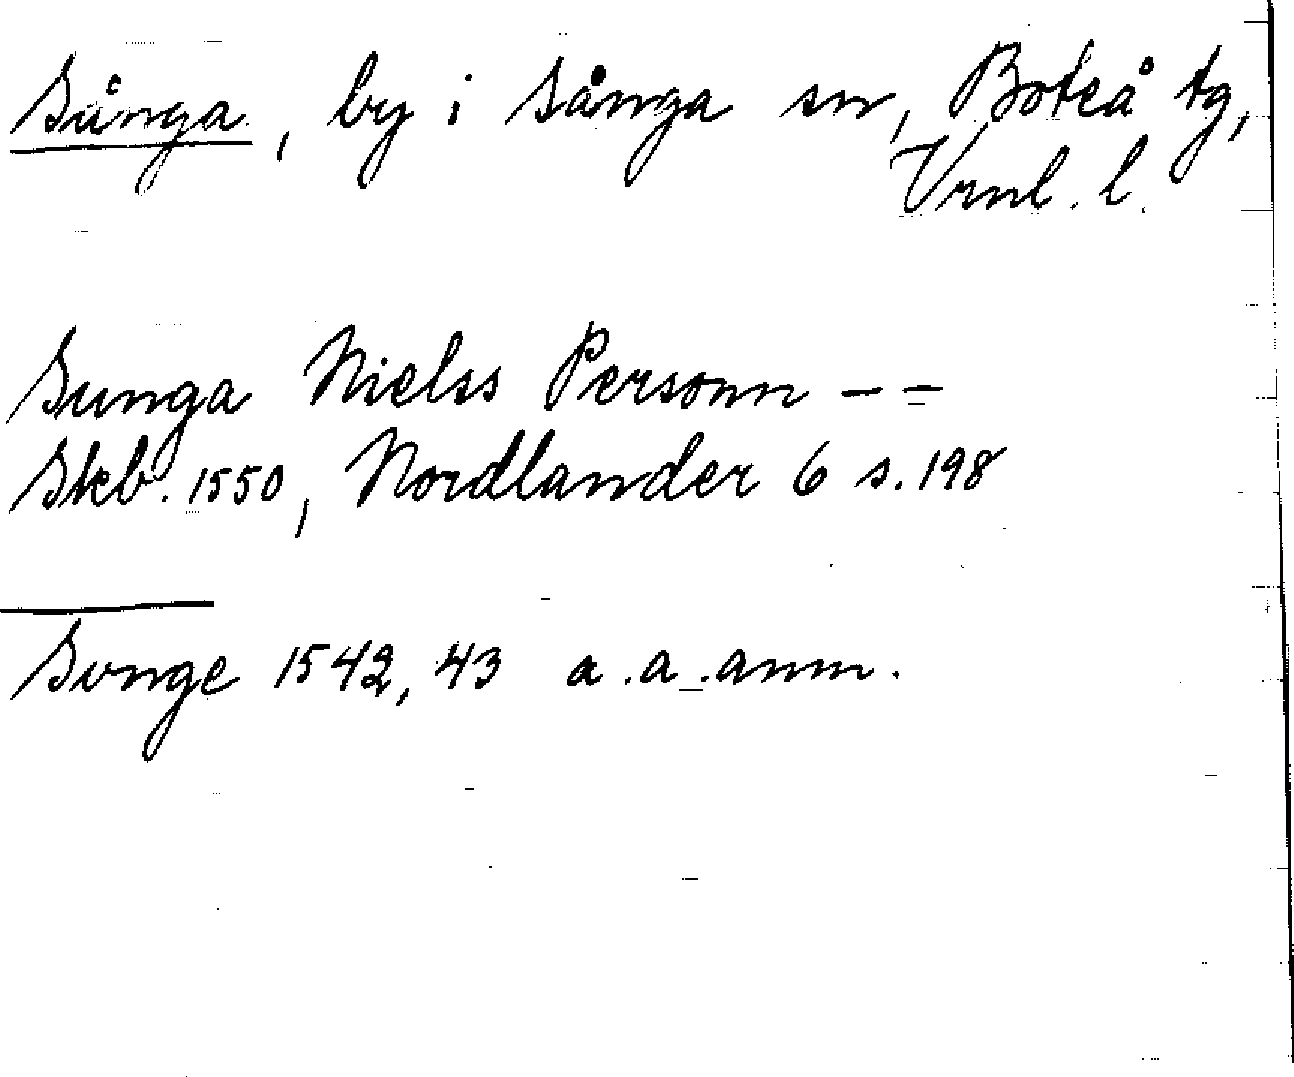 Sånga, by i Sånga sn, Boteå tg,
Vrnl. l.
Sunga Nielss Personn – –
Skb. 1550, Nordlander 6 s. 198
Songe 1542, 43 a. a. anm.